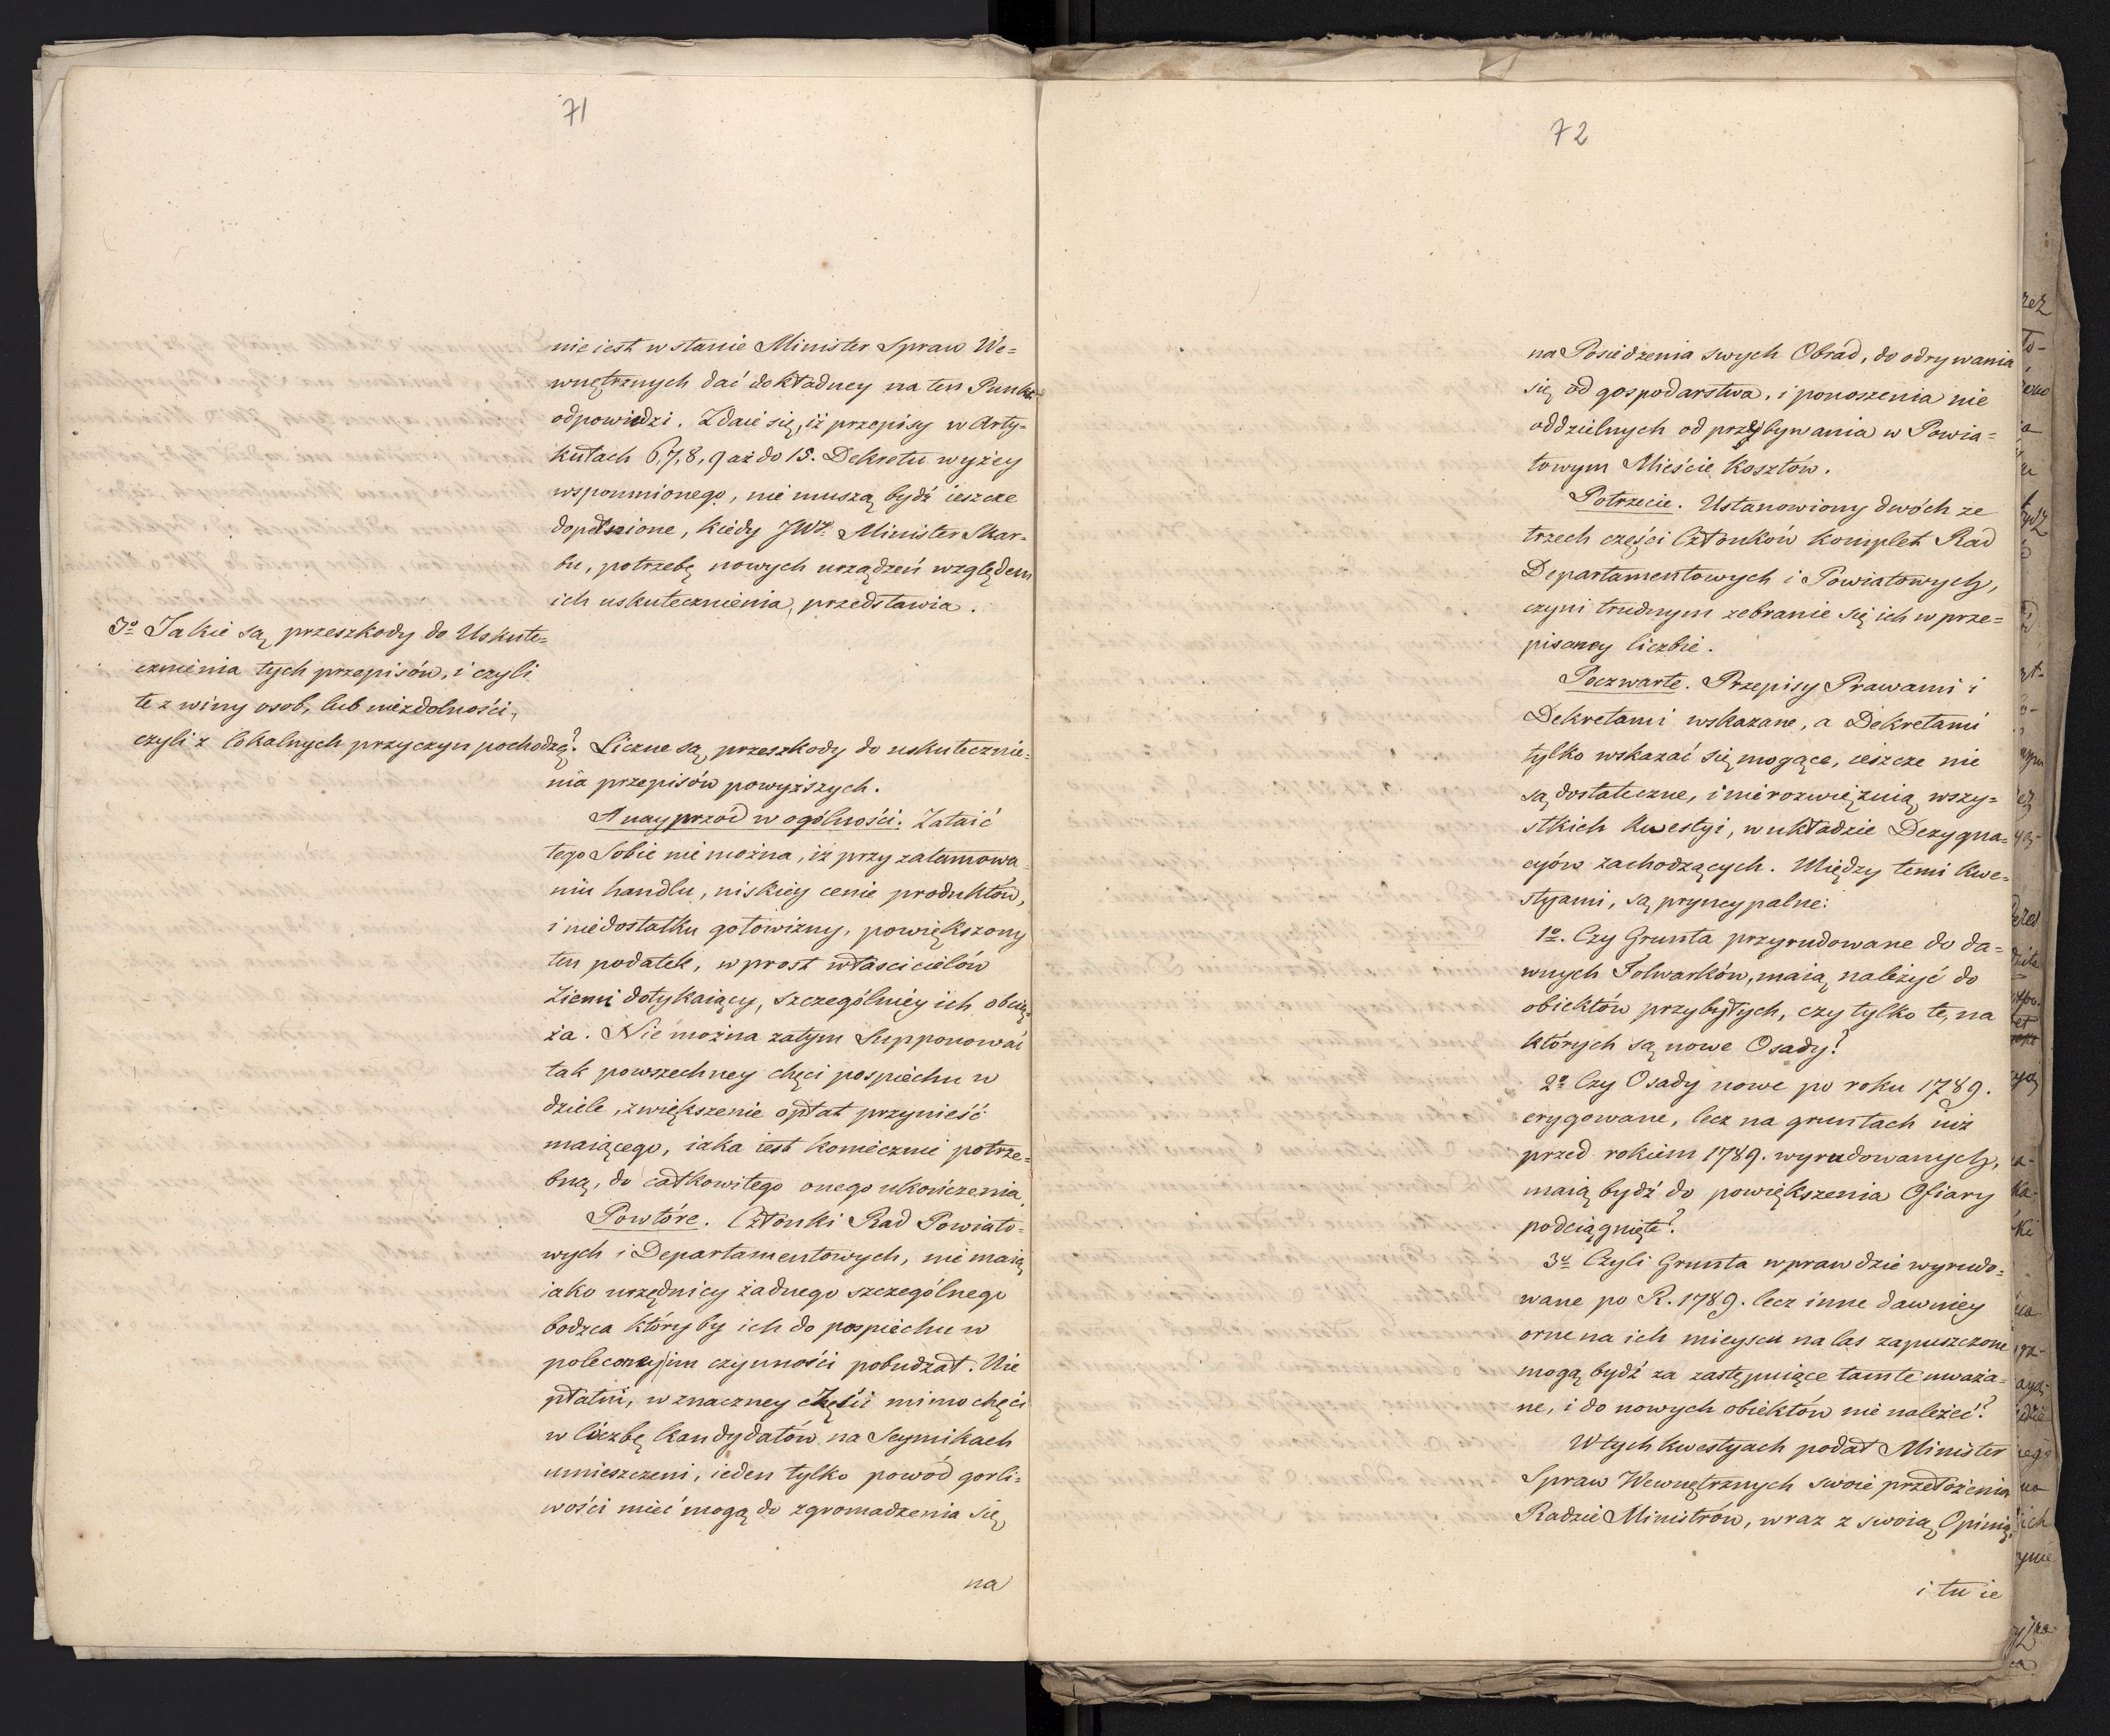 71
nie iest w stanie Minister Spraw We=
wnętrznych dać dokładney na ten Punkt
odpowiedzi. Zdaie się, iż przepisy w Arty=
kułach 6, 7, 8, 9 aż do 15. Dekretu wyżey
wspomnionego, nie muszą bydź ieszcze
dopełnione, kiedy JWz. Minister Skar=
bu, potrzebę nowych urządzeń względem
ich uskutecznienia, przedstawia.
3o Jakie są przeszkody do Uskute=
cznienia tych przepisów, i czyli
te z winy osob, lub niezdolności,
czyli z lokalnych przyczyn pochodzą?
Liczne są przeszkody do uskutecznie=
nia przepisów powyższych.
A nayprzód w ogólności. Zataić
tego Sobie nie można, iż przy zatamowa=
niu handlu, niskiey cenie produktów,
i niedostatku gotowizny, powiększony
ten podatek, wprost właścicielów
Ziemi dotykaiący, szczególniey ich obcią=
ża. Nie można zatym Supponować
tak powszechney chęci pospiechu w
dziele, zwiększenie opłat przynieść
maiącego, iaka iest koniecznie potrze=
bną, do całkowitego onego ukończenia
Powtóre. Członki Rad Powiato=
wych i Departamentowych, nie maią
iako urzędnicy żadnego szczególnego
bodzca któryby ich do pospiechu w
poleconey im czynności pobudzał. Nie
płatni, w znaczney części mimo chęci
w liczbę kandydatów na Seymikach
umieszczeni, ieden tylko powód gorli=
wości mieć mogą do zgromadzenia się
na
72
na Posiedzenia swych Obrad, do odrywania
się od gospodarstwa, i ponoszenia nie
oddzielnych od przebywania w Powia=
towym Mieście Kosztów.
Potrzecie. Ustanowiony dwóch ze
trzech części Członków komplet Rad
Departamentowych i Powiatowych,
czyni trudnym zebranie się ich w prze=
pisaney liczbie.
Poczwarte. Przepisy Prawami i
Dekretami wskazane, a Dekretami
tylko wskazać się mogące, ieszcze nie
są dostateczne, i nie rozwięzuią wszy=
stkich kwestyi, w układzie Dezygna=
cyów zachodzących. Między temi kwe=
styami, są pryncypalne:
1o. Czy Grunta przyrudowane do da=
wnych Folwarków, maią należyć do
obiektów przybyłych, czy tylko te, na
których są nowe Osady?
2o Czy Osady nowe po roku 1789.
erygowane, lecz na gruntach iuż
przed rokiem 1789. wyrudowanych,
maią bydź do powiększenia Ofiary
podciągnięte?
3o Czyli Grunta wprawdzie wyrudo=
wane po R. 1789. lecz inne dawniey
orne na ich mieyscu na las zapuszczone
mogą bydź za zastępuiące tamte uważa=
ne, i do nowych obiektów nie należeć?
W tych kwestyach podał Minister
Spraw Wewnętrznych swoie przełożenia
Radzie Ministrów, wraz z swoią Opinią,
i tu ie